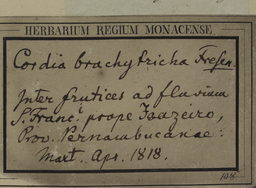 HERBARIUM REGIUM MONACENSE
Cordia brachytricha Fresen.
Inter frutices ad fluvium
S. Franc. prope Joazeiro,
Prov. Pernambucanae:
Mart. Apr. 1818.